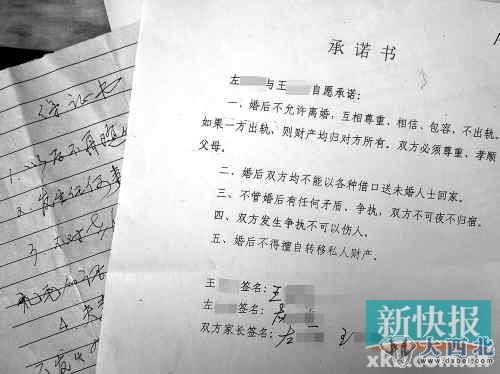 承诺书
左 与王 自愿承诺：
一、婚后不允许离婚，互相尊重、相信、包容、不出轨。
如果一方出轨，则财产均归对方所有。双方必须尊重、孝顺
父母。
二、婚后双方均不能以各种借口送未婚人士回家。
三、不管婚后有任何矛盾、争执，双方不可夜不归宿。
四、双方发生争执不可以伤人。
五、婚后不得擅自转移私人财产。
王 签名：王
左 签名：
双方家长签名：左 王
保证书
1、
2、发生任何事
3、
4、
新快报
大西北
www.dxbei.com